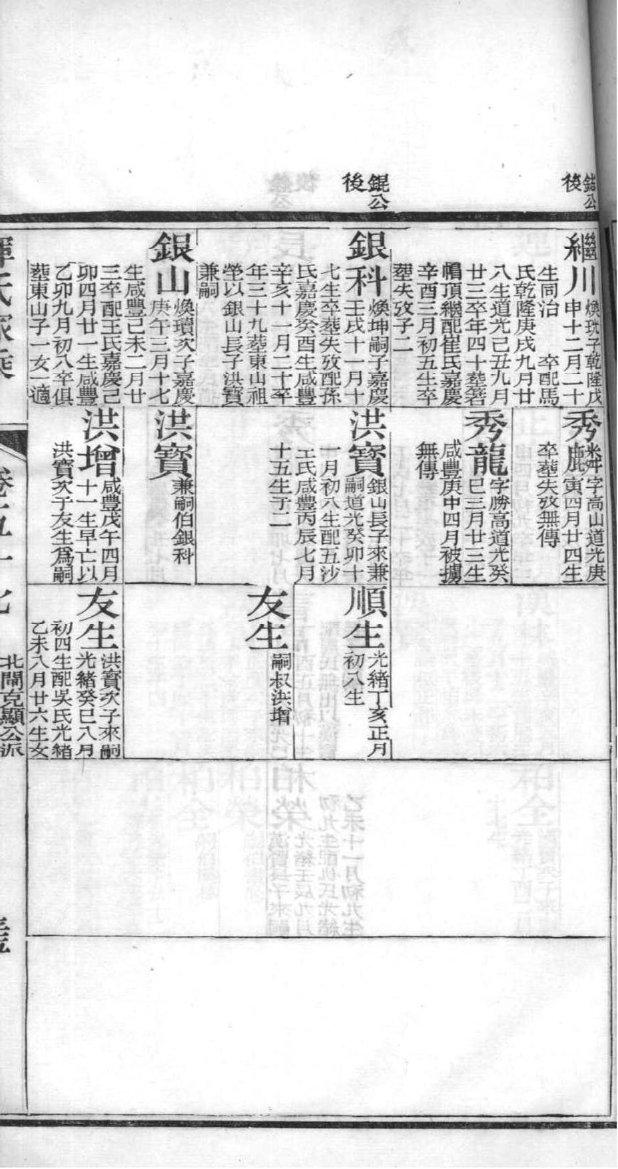 錕公
後
繼川
煥玧子乾隆戊
申十二月二十
生同治 卒配馬
氏乾隆庚戌九月廿
八生道光己丑九月
廿三卒年四十葬箬
帽頂繼配崔氏嘉慶
辛酉三月初五生卒
葬失攷子二
錕公
後
銀科
煥坤嗣子嘉慶
壬戌十一月十
七生卒葬失攷配孫
氏嘉慶癸酉生咸豐
辛亥十一月二十卒
年三十九葬東山祖
塋以銀山長子洪寶
兼嗣
銀山
煥瓚次子嘉慶
庚午三月十七
生咸豐己未二月廿
三卒配王氏嘉慶己
卯四月廿一生咸豐
乙卯九月初八卒俱
葬東山子一女一適
秀
字高山道光庚
寅四月廿四生
卒葬失攷無傳
秀龍
字勝高道光癸
巳三月廿三生
咸豐庚申四月被擄
無傳
洪寶
銀山長子來兼
嗣道光癸卯十
一月初八生配五沙
王氏咸豐丙辰七月
十五生子二
洪寶
兼嗣伯銀科
洪增
咸豐戊午四月
十一生早亡以
洪寶次子友生爲嗣
順生
光緒丁亥正月
初八生
友生
嗣叔洪增
友生
洪寶次子來嗣
光緒癸巳八月
初四生配吳氏光緒
乙未八月廿六生女
惲氏家乘
卷五十七
北門克顯公派